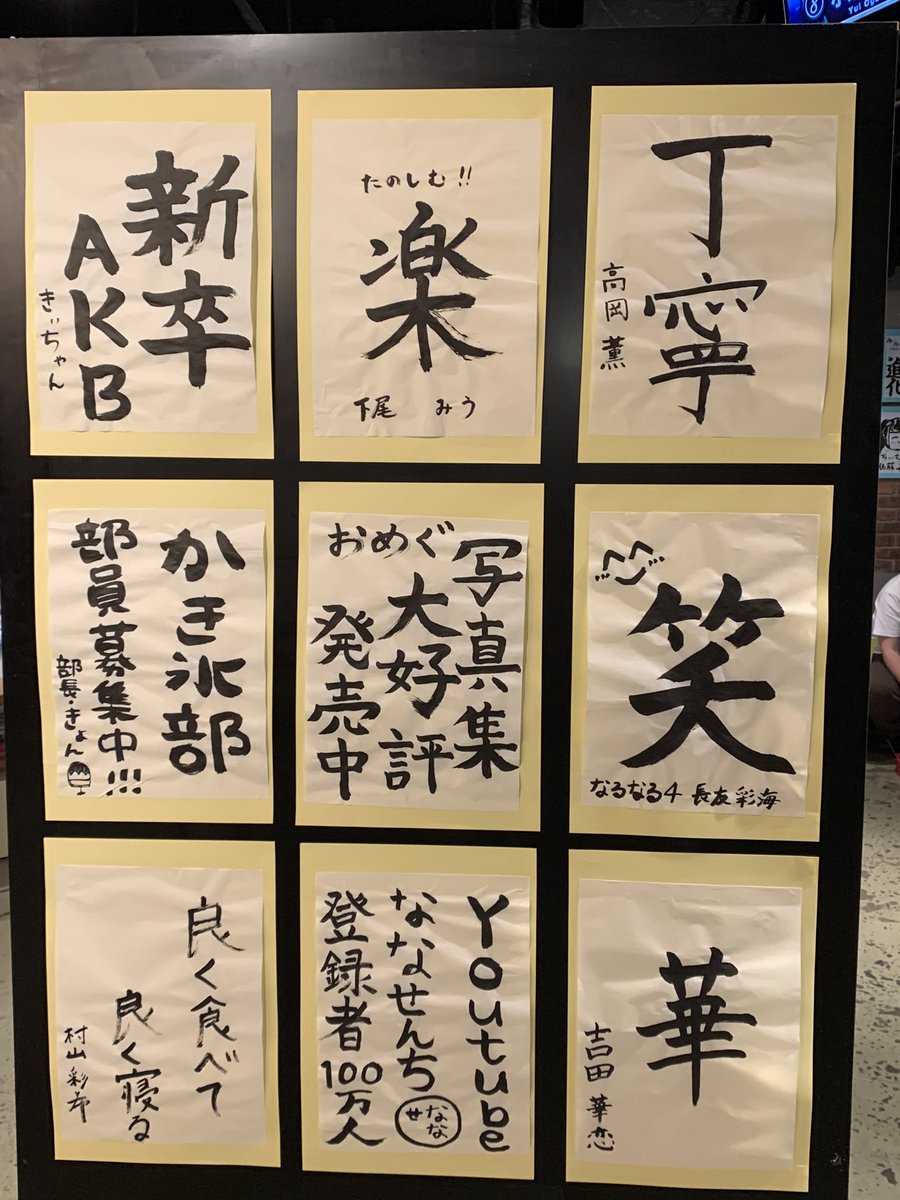 丁寧
高岡薫
たのしむ!!
楽
下尾 みう
新卒
AKB
きぃちゃん
笑
なるなる4 長友彩海
写真集
大好評
発売中
おめぐ
かき氷部
部員募集中!!!
部長・きょん
華
吉田華恋
Youtube
ななせんち
ななせ
登録者100万人
良く食べて
良く寝る
村山彩希
進化